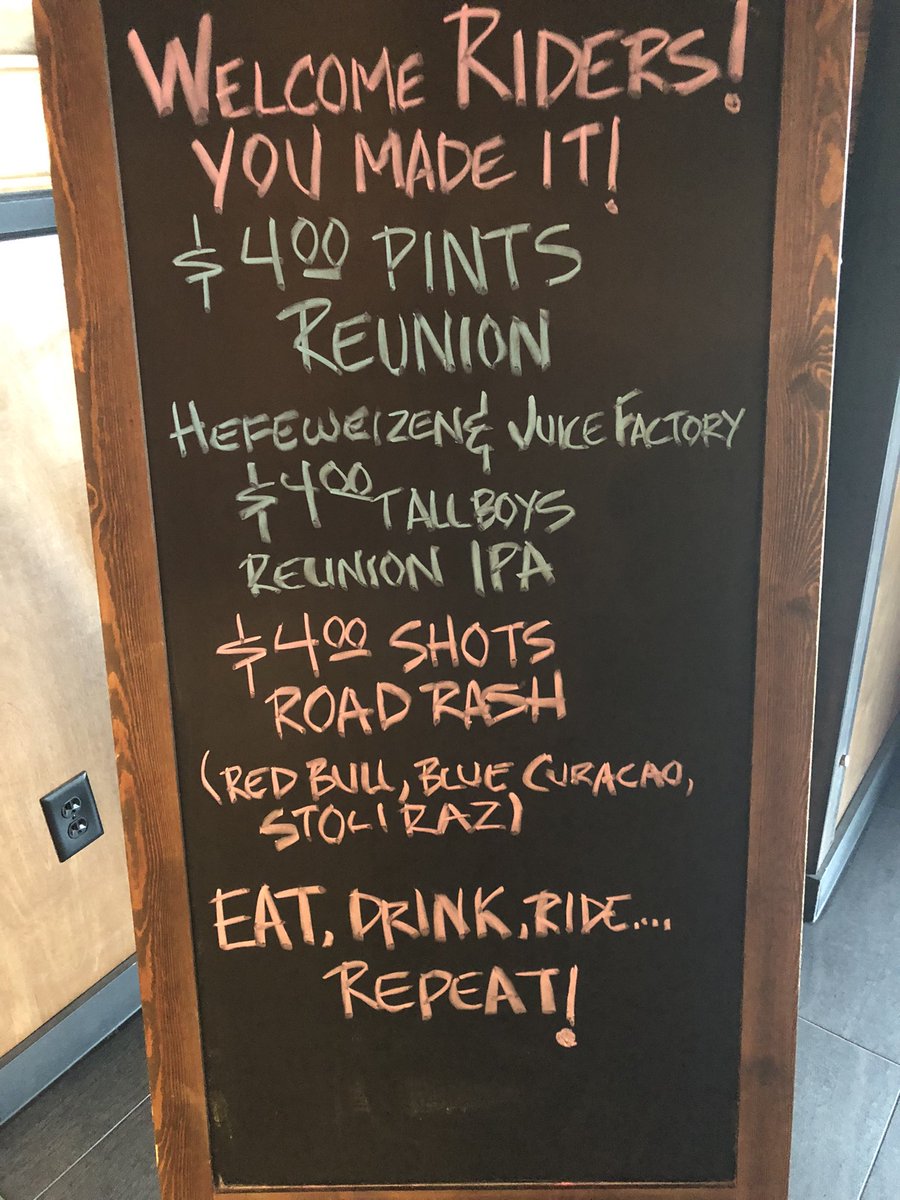 WELCOME RIDERS!
YOU MADE IT!
$4.00 PINTS
REUNION
HEFEWEIZEN & JUICE FACTORY
$4.00 TALLBOYS
REUNION IPA
$4.00 SHOTS
ROAD RASH
(RED BULL, BLUE CURACAO,
STOLI RAZ)
EAT, DRINK, RIDE....
REPEAT!